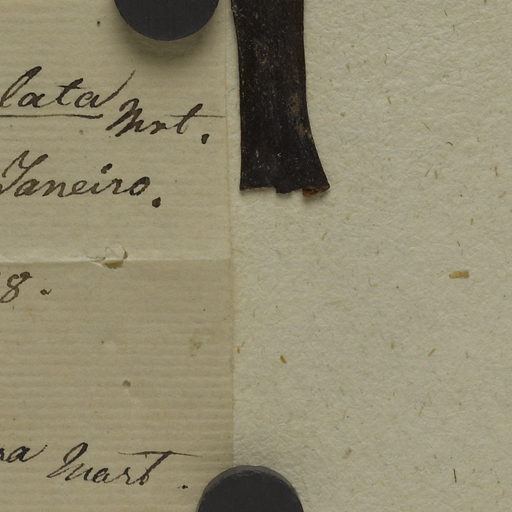 lata Mrt.
Janeiro.
8.
ra Mart.